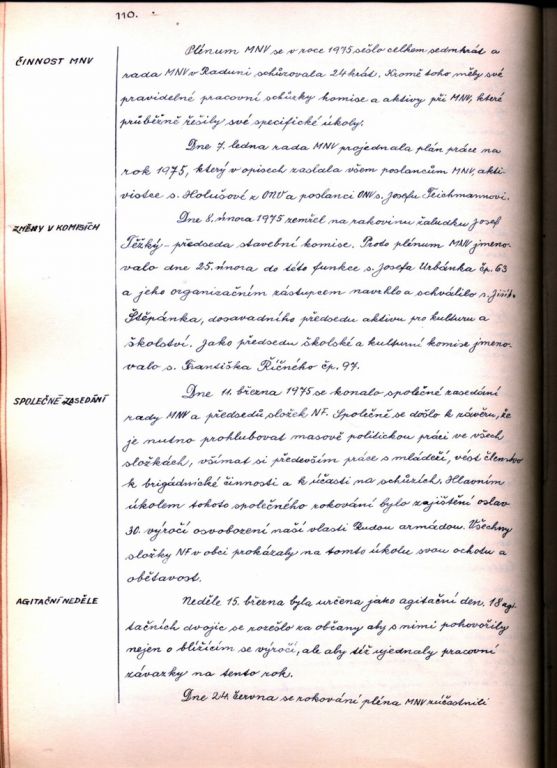 110.
ČINNOST MNV
Plénum MNV se v roce 1975 sešlo celkem sedmkrát a
rada MNV v Raduni schůzovala 24 krát. Kromě toho měly své
pravidelné pracovní schůzky komise a aktivy při MNV, které
průběrně řešily své specifické úkoly.
Dne 7. ledna rada MNV projednala plán práce na
rok 1975, který v opisech zaslala všem poslancům MNV, akti-
vistce s. Holušové z ONV a poslanci ONV s. Josefu Teichmannovi.
ZMĚNY V KOMISÍCH
Dne 8. února 1975 zemřel na rakovinu žaludku Josef
Těžký - předseda stavební komise. Proto plénum MNV jmeno-
valo dne 25. února do této funkce s. Josefa Urbánka čp. 63
a jeho organizačním zástupcem navrhlo a schválilo s. Jiří
Štěpánka, dosavadního předsedu aktivu pro kulturu a
školství. Jako předsedu školské a kulturní komise jmeno-
valo s. Františka Říčného čp. 97.
SPOLEČNÉ ZASEDÁNÍ
Dne 11. března 1975 se konalo společné zasedání
rady MNV a předsedů složek NF. Společně se došlo k závěru, že
je nutno prohlubovat masově politickou práci ve všech
složkách, všímat si především práce s mládeží, vést členstvo
k brigádnické činnosti a k účasti na schůzích. Hlavním
úkolem tohoto společného rokování bylo zajištění oslav
30. výročí osvobození naší vlasti Rudou armádou. Všechny
složky NF v obci prokázaly na tomto úkolu svou ochotu a
obětavost.
AGITAČNÍ NEDĚLE
Neděle 15. března byla určena jako agitační den. 18 agi-
tačních dvojic se rozešlo za občany aby s nimi pohovořily
nejen o blížícím se výročí, ale aby též ujednaly pracovní
závazky na tento rok.
Dne 24. června se rokování pléna MNV zúčastnili